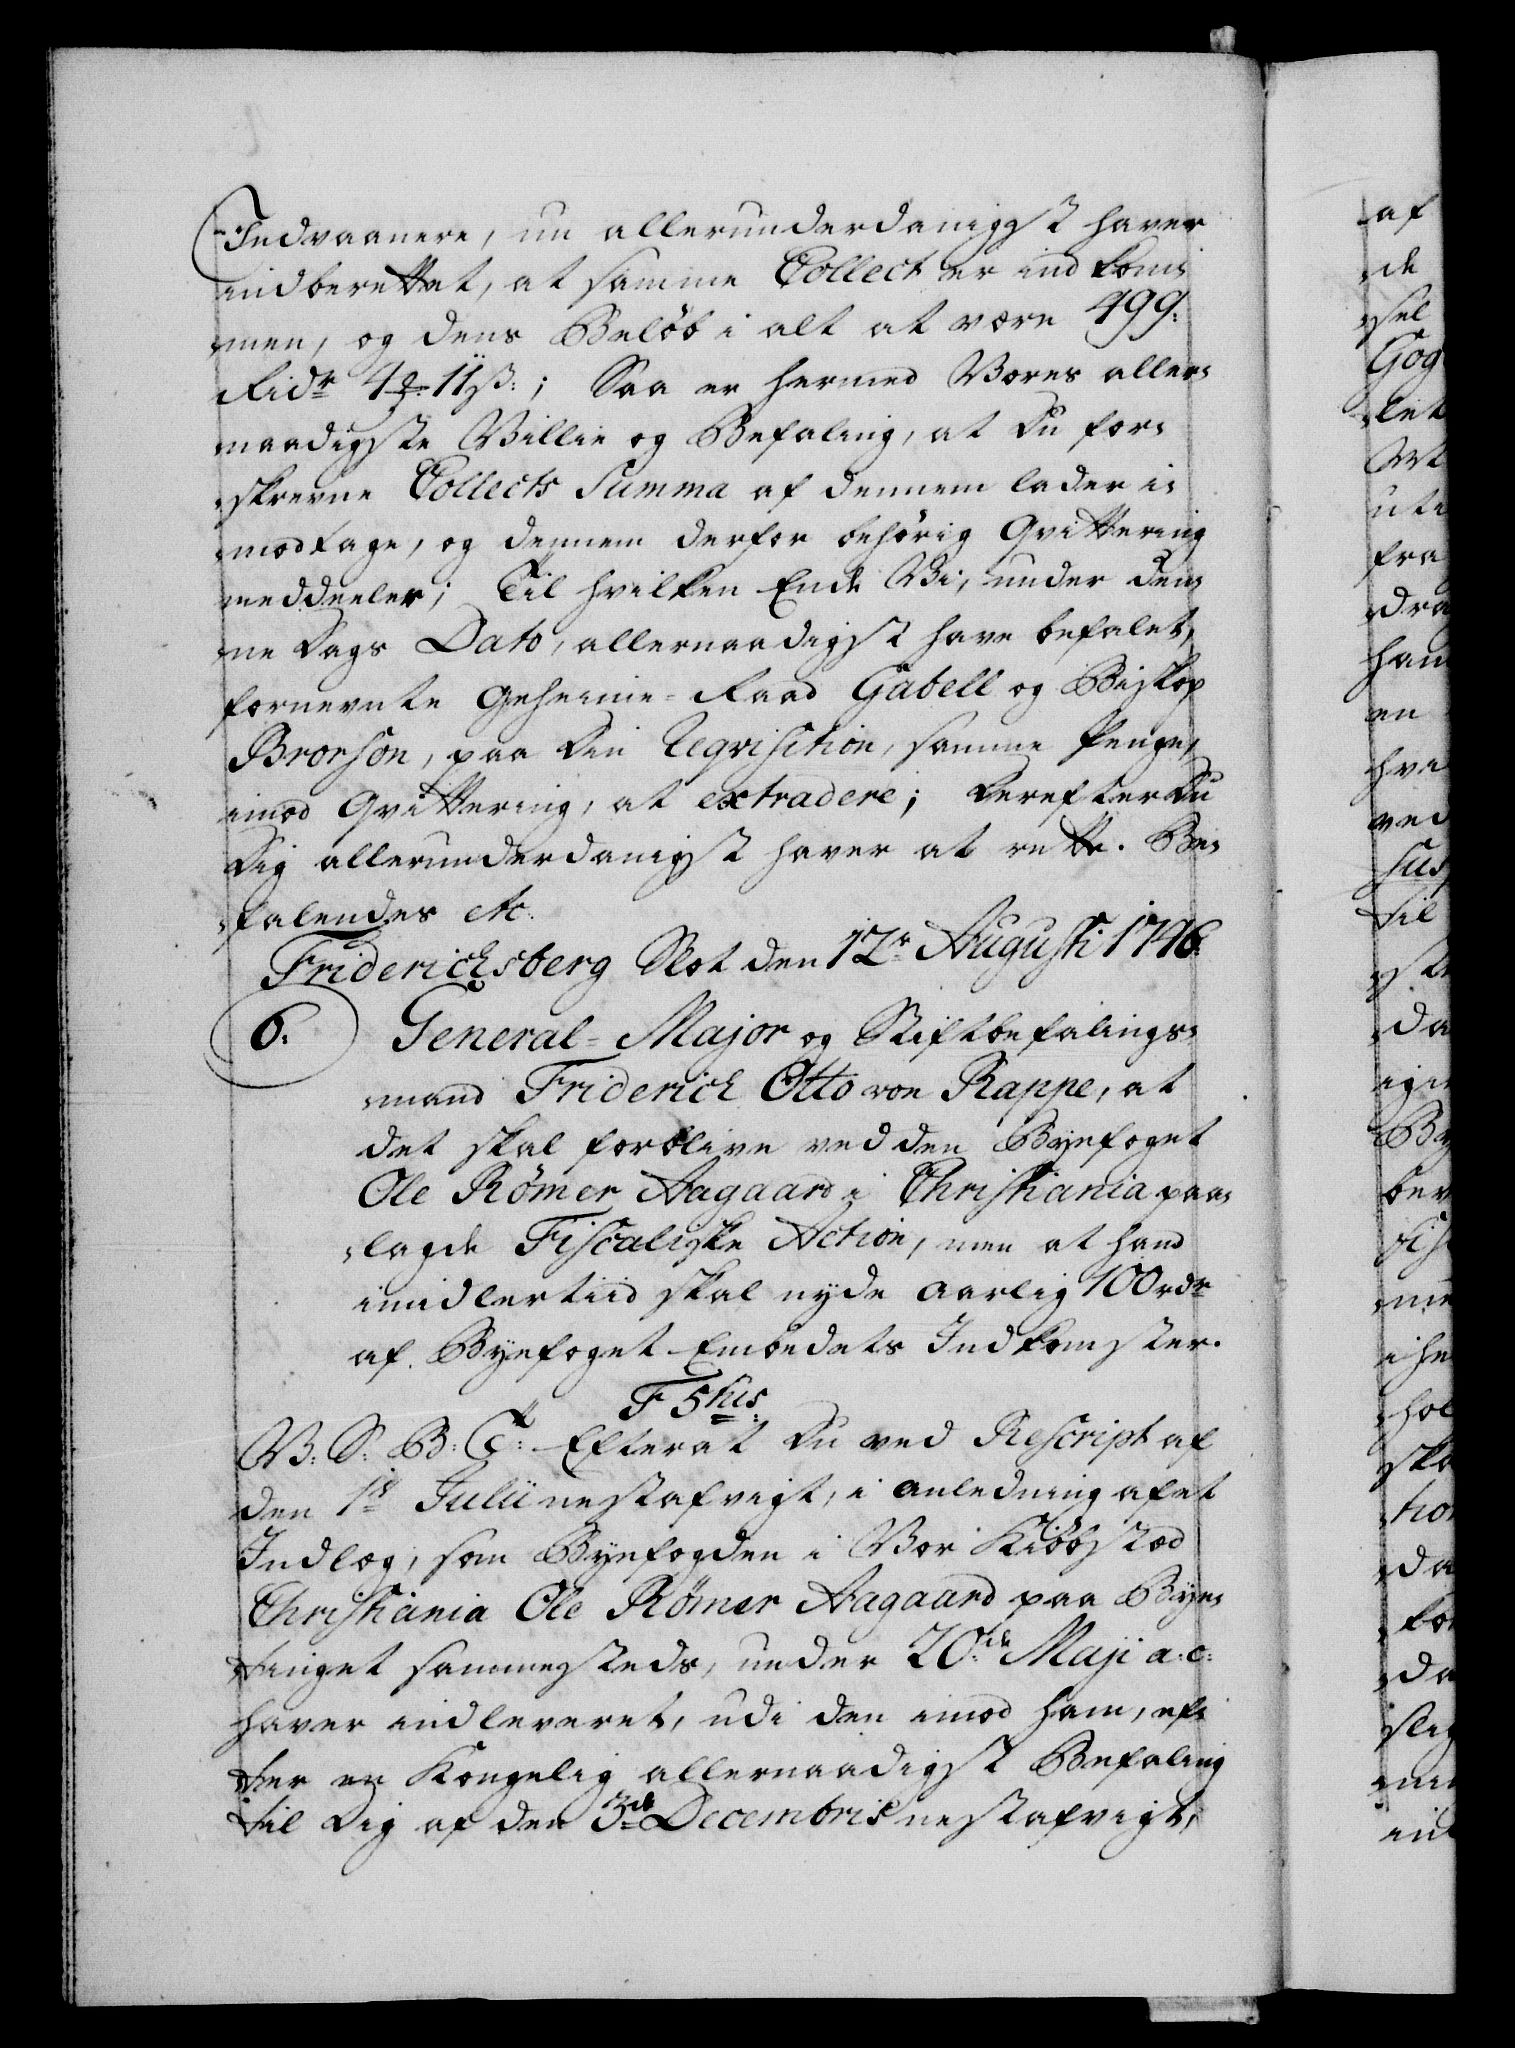 Indvaanere, nu allerunderdanigst haver
indberettet, at samme Collect er indkom¬
men, og dens Beløb i alt at være 499.
Ridr 4 11ß: ; Saa er hermed Vores aller¬
naadigste Villie og Befaling, at du for¬
skrevne Collects Summa af dennem lader i¬
modtage, og dennem derfor behörig Qvittering
meddeeler; Til hvilken Ende Vi, under den¬
ne Dags Dato, allernaadigst have befalet,
fornevnte Geheime-Raad Gabell og Biskop
Brorson, paa din Reqvisition, samme Penge,
imod Qvittering, at extradere; Derefter Du
Dig allerunderdanigst haver at rette. Be¬
falendes etc.
Friderichsberg Slot den 12te Augusti 1746.
6. General-Major og Stiftbefalings¬
mand Friderich Otto von Rappe, at
det skal forblive ved den Byefoget
Ole Römer Aagaard i Christiania paa¬
lagde Fiscaliske Action, men at hand
imidlertiid skal nyde aarlig 100 rdr
af Byefoget Embedets Indkomster.
F 5tus
V: S: B: T: Efterat Du ved Rescript af
den 1ste Julii nestafvigt, i anledning af et
Indlæg, som Byefogden i Vor Kiøbstæd
Christiania Ole Römer Aagaard paa Bye¬
tinget sammesteds, under 20de Maji a: c:
haver indleveret, udi den imod ham, ef¬
ter en Kongelig allernaadigst Befaling
til Dig af den 3de Decembris nestafvigt,
af
de
sel
Gog
let
fra
dra
ham
en
hvi
ved
sus
til
da
igi
By
bev
me
ihe
hol
ska
tion
da
for
da
slig
min
ind